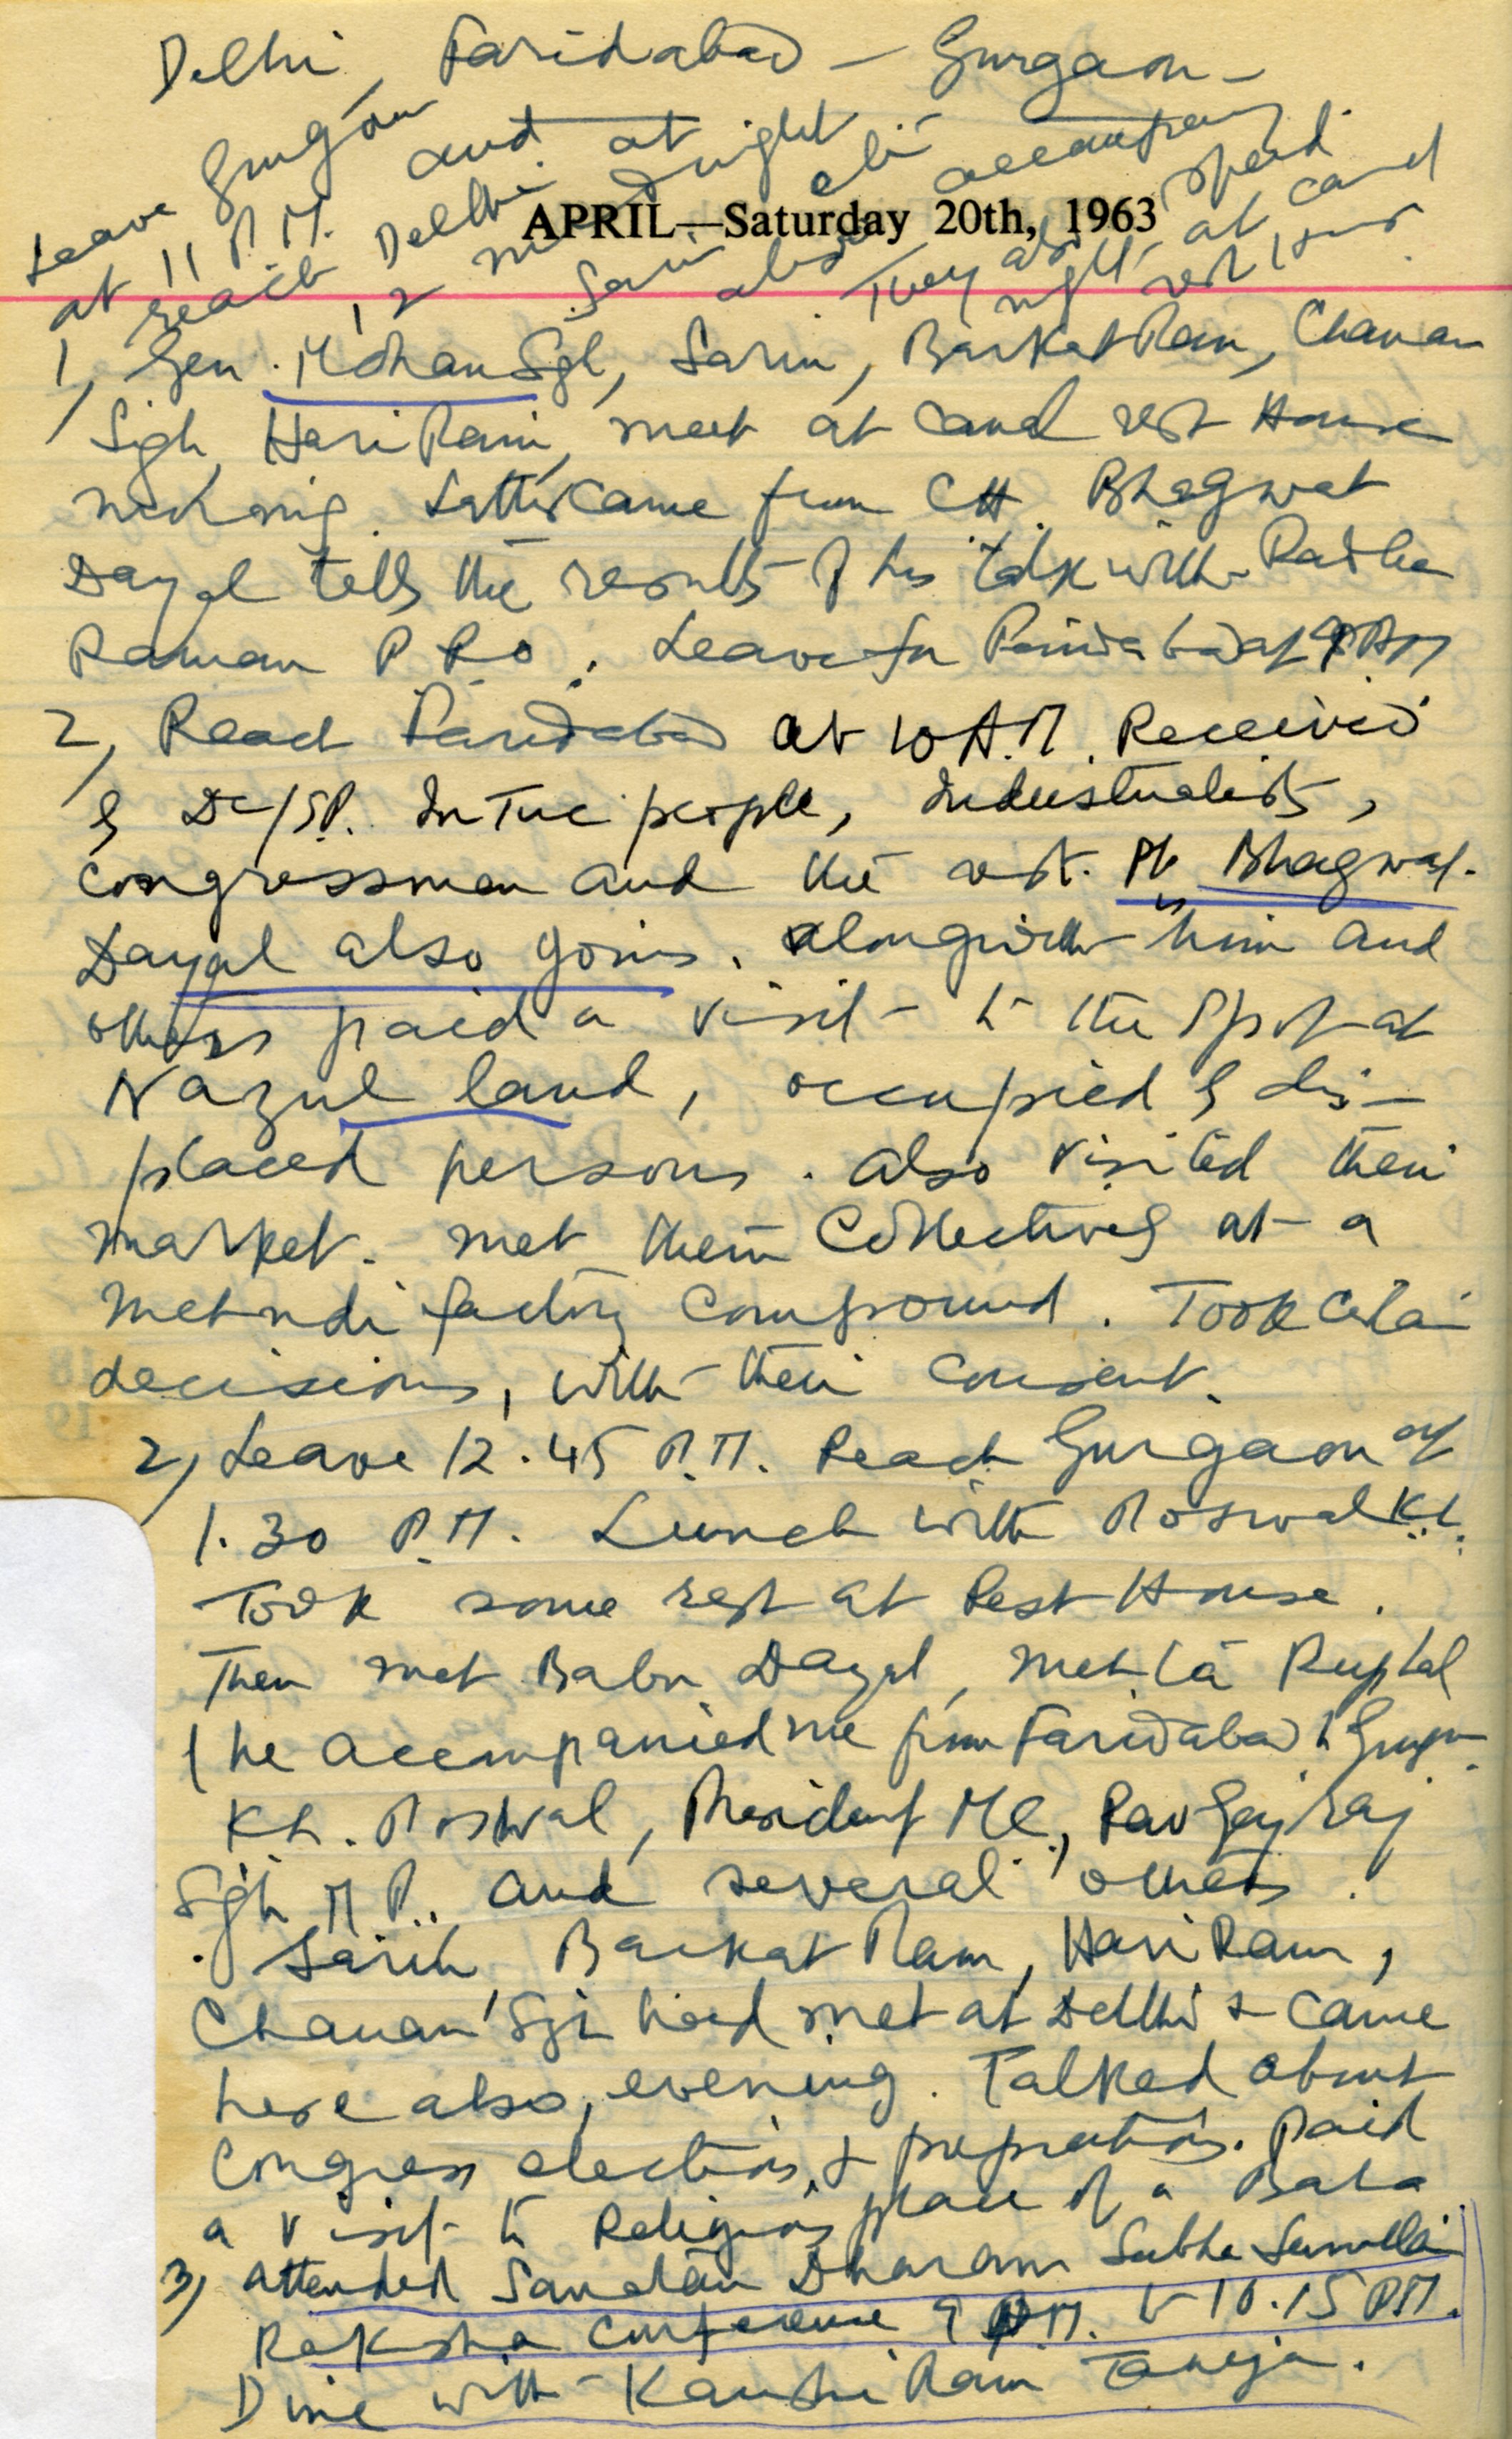 Delhi, Faridabad – Gurgaon –
Leave Gurgaon
at 11 P.M. and at
reach Delhi
12 mid night
Sarin etc accompany
also They also spend
night at canal
rest house
APRIL—Saturday 20th, 1963
1, Gen. Mohan Sgh, Sarin, Barkat Ram, Chanan
Sigh, Hari Ram, meet at canal rest House
morning. Latter came from CH. Bhagwat
Dayal tells the results of his talk with Radha
Raman P R O. Leave for Faridabad at 9 AM
2, Reach Faridabad at 10 A.M. Received
by DC/SP. Intuc people, Industrialists,
congressmen and the rest. Pt Bhagwat
Dayal also joins. alongwith him and
others paid a visit to the spot at
Nazul land, occupied by dis-
placed persons. also visited their
market. met them collectively at a
Mehndi factory compound. Took certain
decisions, with their consent.
2, Leave 12.45 P.M. Reach Gurgaon at
1.30 P.M. Lunch with K.L.
Took some rest at Rest House.
Then met Babu Dayal, Mehta Ruplal
(he accompanied me from Faridabad to Gurgaon
K.L. President MC, Rao Gajraj
Sgh M P. and several others.
Sarin Barkat Ram, Hari Ram,
Chanan Sgh had met at Delhi & came
here also, evening. Talked about
Congress elections, & preparations. Paid
a visit to Religious place of a Baba
3, attended Sanatan Dharam Sabha
Raksha Conference 9 P.M. to 10.15 P.M.
Dine with Kanshi Ram Taneja.